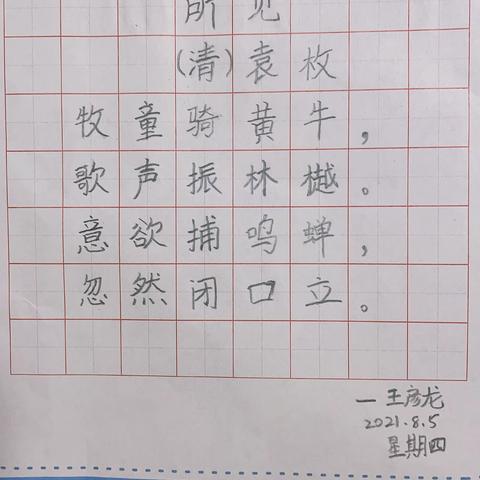 所见
(清)袁枚
牧童骑黄牛，
歌声振林樾。
意欲捕鸣蝉，
忽然闭口立。
一王彦龙
2021.8.5
星期四